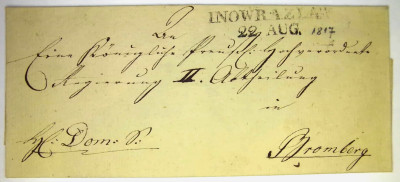 INOWRAZLAW
22 AUG. 1817
An
Eine Königliche Preuß: Hochverordnete
Regierung II. Abtheilung
in
Hℓ: Dom: S: Bromberg